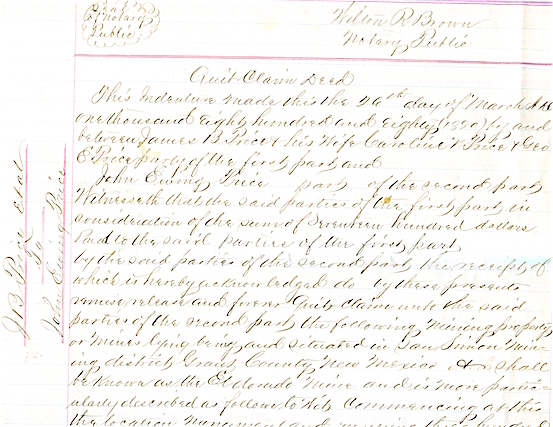 Seal of
Notary
Public
Wilton R. Brown
Notary Public
Quit Claim Deed
This Indenture made this the 26th day of March A.D.
one thousand eight hundred and eighty (1880) by and
between James B Price & his Wife Caroline V Price & Geo
E Price party of the first part and
John Ewing Price part of the second part
Witnesseth that the said parties of the first part in
consideration of the sum of Seventeen hundred dollars
Paid to the said parties of the first part
by the said parties of the second part the receipt of
which is hereby acknowledged do by these presents
remise release and forever Quit Claim unto the said
parties of the second part the following Mining property
or Mines lying being and situated in San Simon Min-
ing district Grant County New Mexico & shall
be Known as the El dorado Mine and is more partic-
ularly described as follows to Wit Commencing at this
the location Monument and running three hundred
J B Price et al
To
John Ewing Price